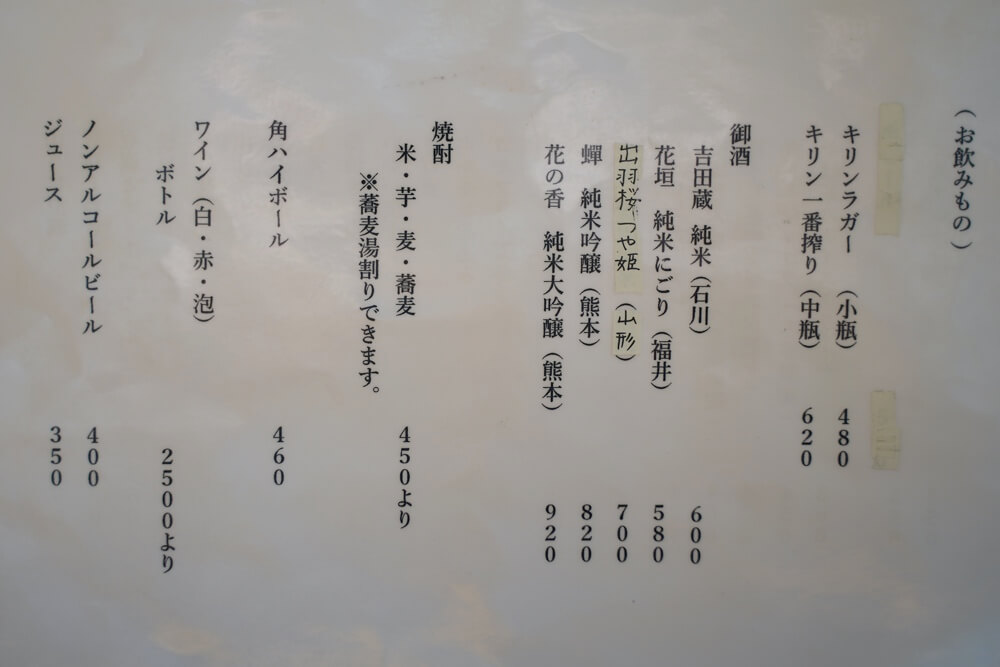 （お飲みもの）
キリンラガー（小瓶） 480
キリン一番搾り（中瓶） 620
御酒
吉田蔵 純米（石川） 600
花垣 純米にごり（福井） 580
出羽桜 つや姫（山形） 700
蟬 純米吟醸（熊本） 820
花の香 純米大吟醸（熊本） 920
焼酎
米・芋・麦・蕎麦 450より
※蕎麦湯割りできます。
角ハイボール 460
ワイン（白・赤・泡）
ボトル 2500より
ノンアルコールビール 400
ジュース 350